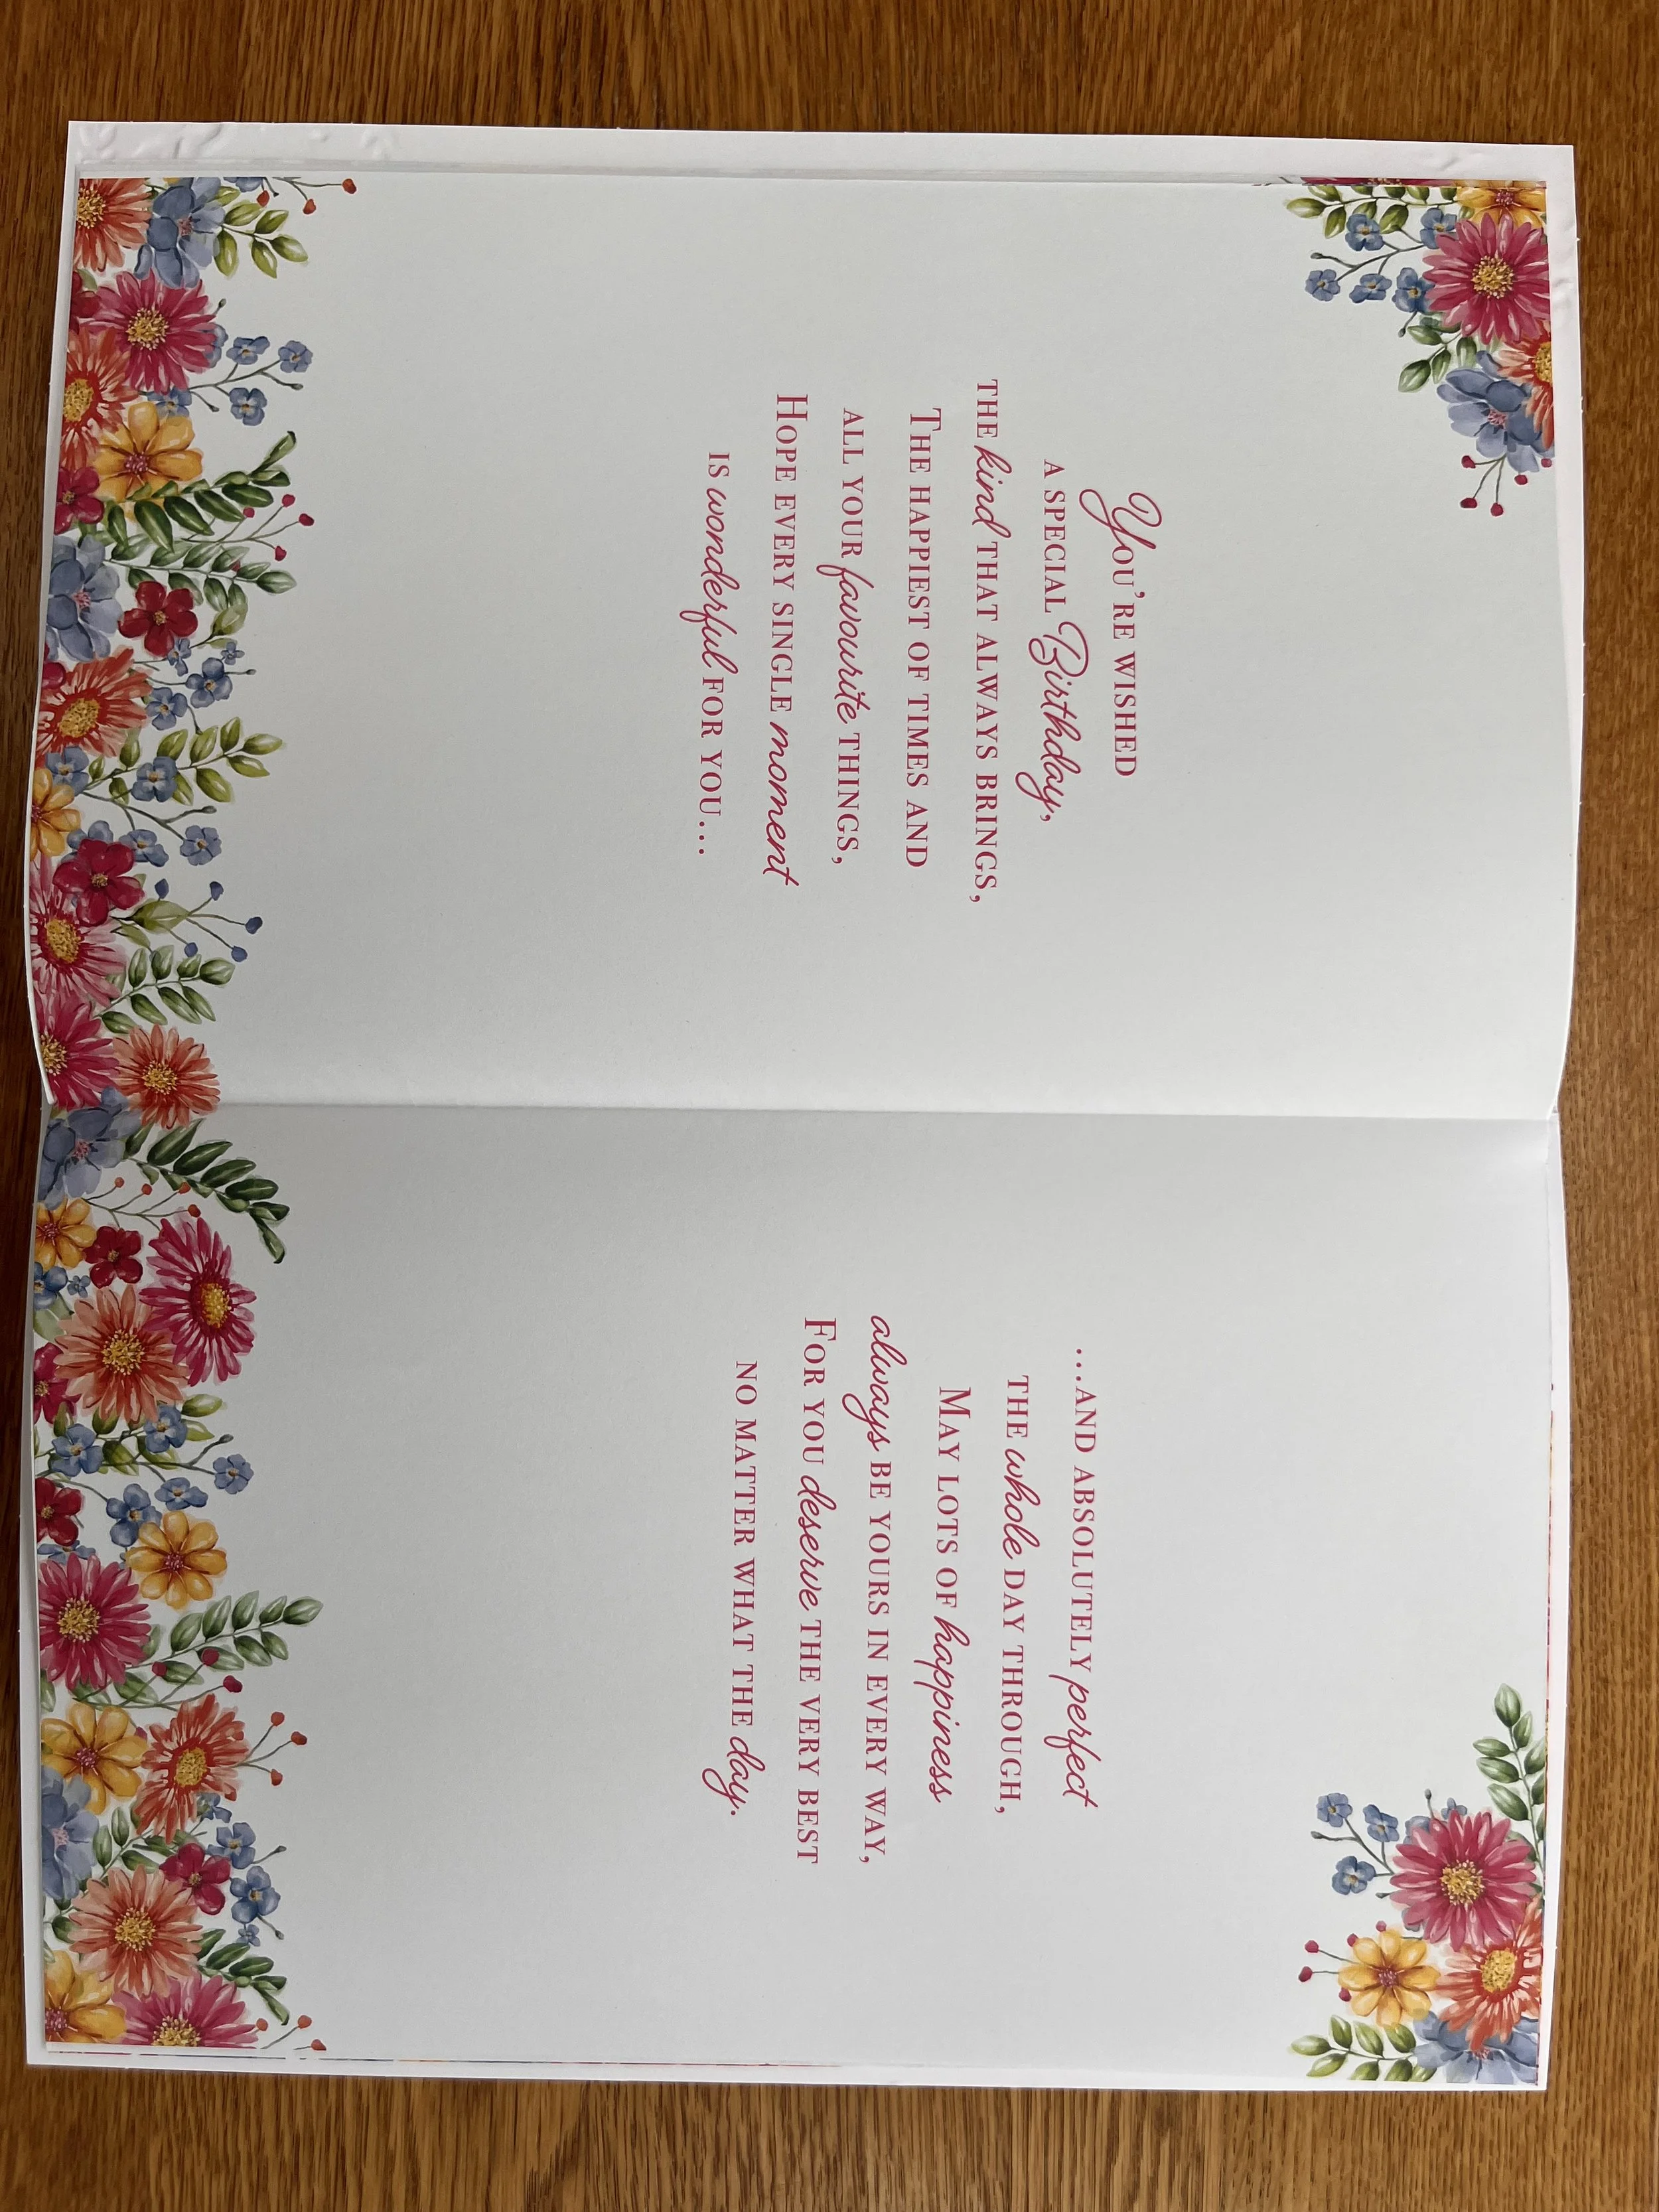 You're wished
a special Birthday,
the kind that always brings,
The happiest of times and
all your favourite things,
Hope every single moment
is wonderful for you...
...and absolutely perfect
the whole day through,
May lots of happiness
always be yours in every way,
For you deserve the very best
no matter what the day.